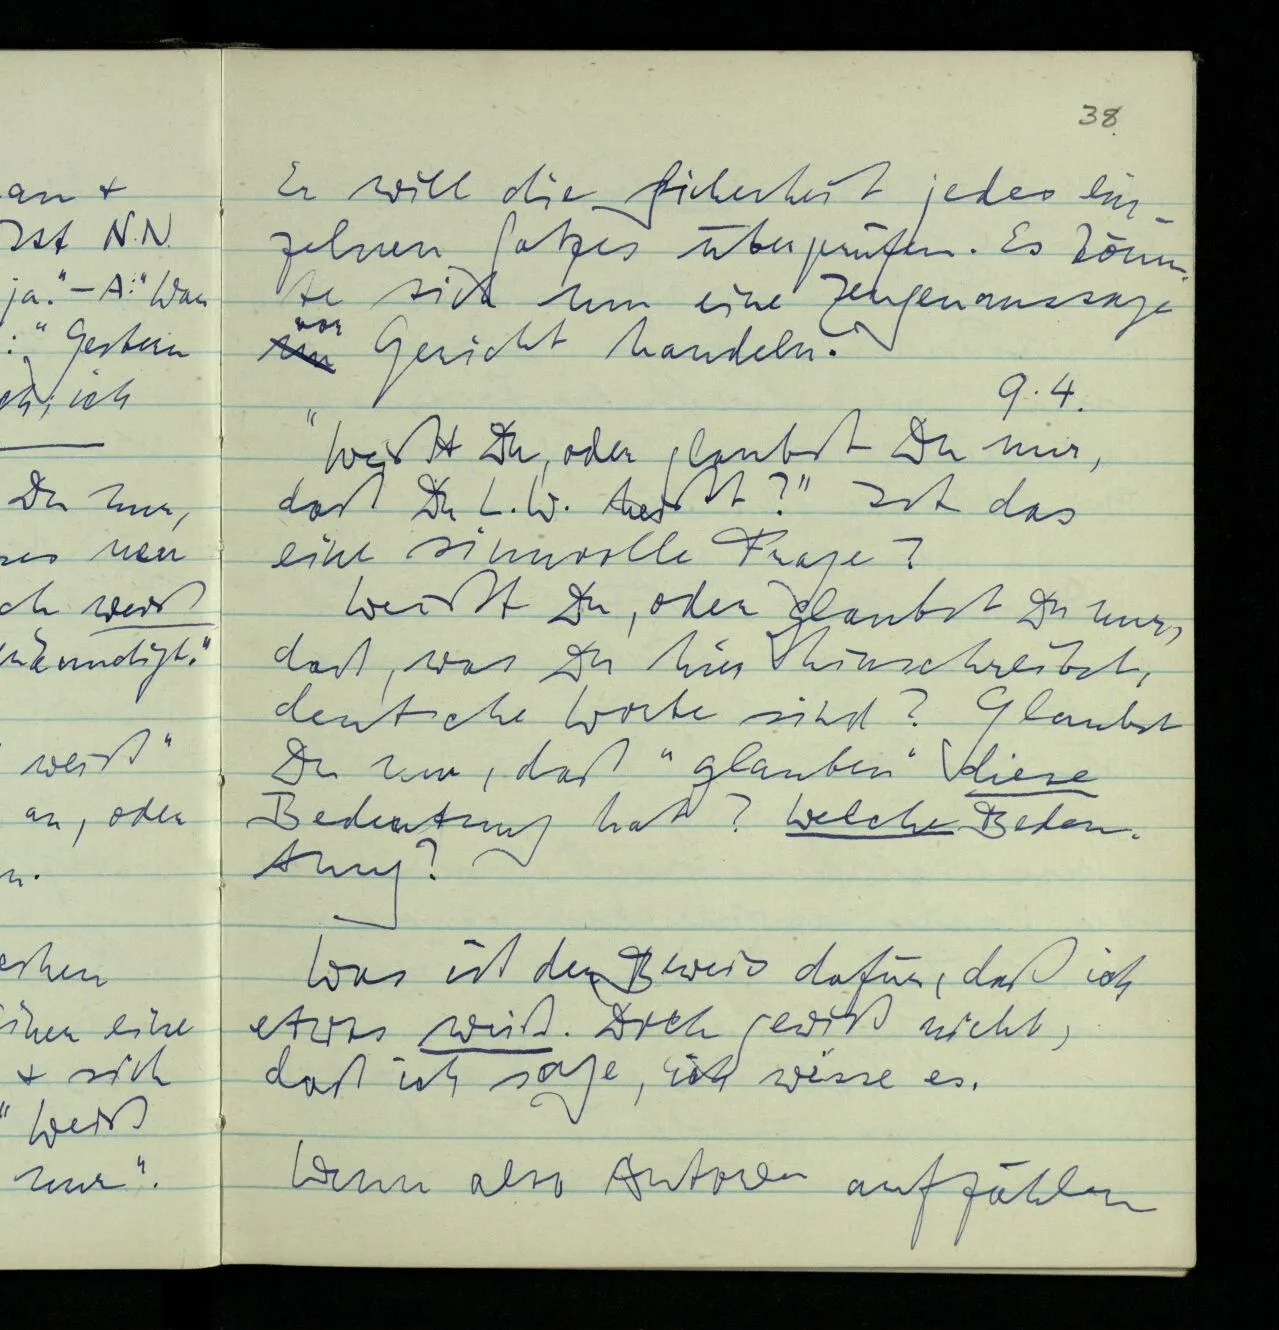 an +
Ist N.N.
ja." – A: "Wan
: "Gestern
ich
Du nur,
ch weiß
erkundigt."
weiß"
an, oder
n.
eine
+ sich
"Weiß
nur".
38
Er will die Sicherheit jedes ein-
zelnen Satzes überprüfen. Es könn-
te sich um eine Zeugenaussage
vor
Gericht handeln.
9.4.
"Weißt Du, oder glaubst Du nur,
daß Du L.W. heißt?" Ist das
eine sinnvolle Frage?
Weißt Du, oder glaubst Du nur,
daß, was Du hier hinschreibst,
deutsche Worte sind? Glaubst
Du nur, daß "glauben" diese
Bedeutung hat? Welche Bedeu-
tung?
Was ist der Beweis dafür, daß ich
etwas weiß. Doch gewiß nicht,
daß ich sage, ich wisse es.
Wenn also Autoren aufzählen